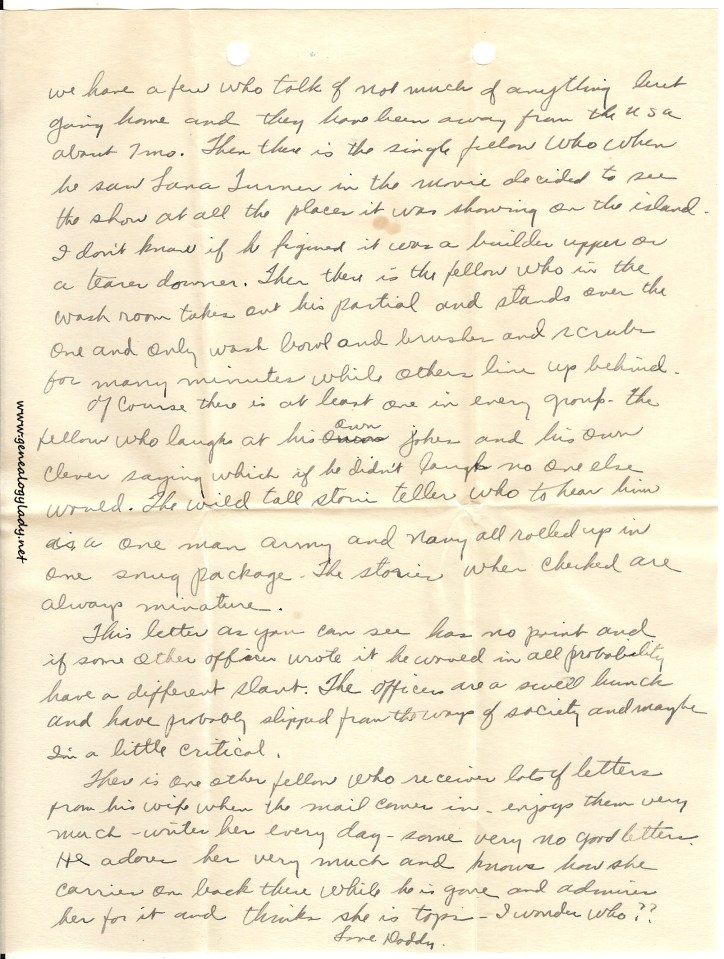 we have a few who talk of not much of anything but
going home and they have been away from the USA
about 7 mo. Then there is the single fellow who when
he saw Lana Turner in the movie decided to see
the show at all the places it was showing on the island.
I don't know if he figured it was a builder upper or
a tearer downer. Then there is the fellow who in the
wash room takes out his partial and stands over the
one and only wash bowl and brushes and scrubs
for many minutes while others line up behind.
Of course there is at least one in every group - the
fellow who laughs at his own jokes and his own
clever saying which if he didn't laugh no one else
would. The wild tall storie teller who to hear him
is a one man army and navy all rolled up in
one snug package - The stories when checked are
always minature.
This letter as you can see has no point and
if some other officer wrote it he would in all probability
have a different slant. The officers are a swell bunch
and have probably slipped from the ways of society and maybe
I'm a little critical.
There is one other fellow who receives lots of letters
from his wife when the mail comes in - enjoys them very
much - writes her every day - some very no good letters.
He adores her very much and knows how she
carries on back there while he is gone and admires
her for it and thinks she is tops - I wonder who??
Love Daddy.
www.genealogylady.net